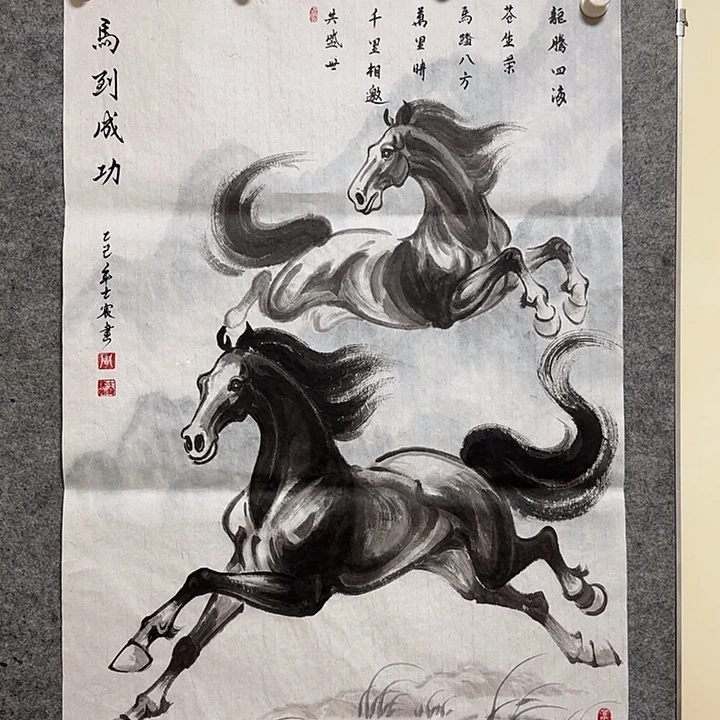 龍騰四海
蒼生榮
馬踏八方
萬里晴
千里相邀
共盛世
馬到成功
乙巳年士農畫